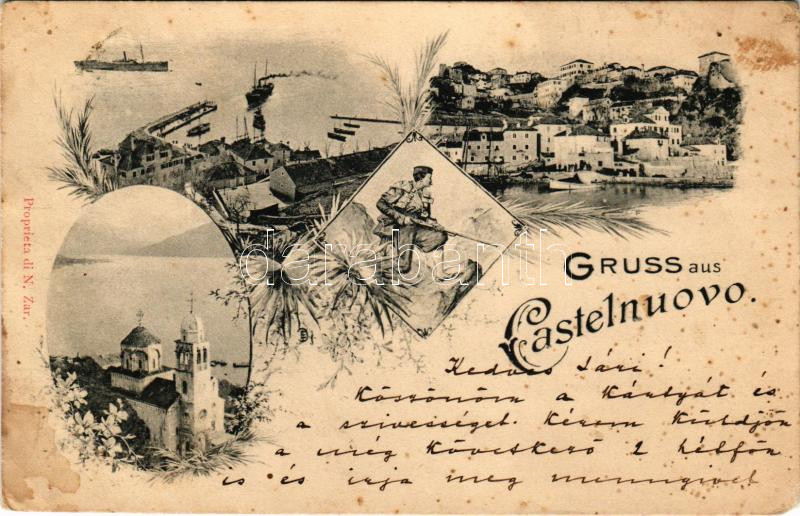 GRUSS aus
Castelnuovo.
Proprieta di N. Zar.
darabanth
Kedves Sári!
Köszönöm a Kártyát és
a szivességet. Kérem Küldjön
a még Következő 2 hétfőn
is és irja meg mennyivel